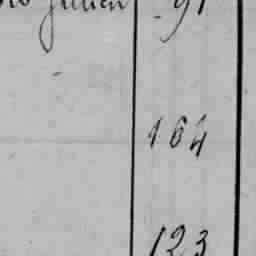 Julien 91
164
123